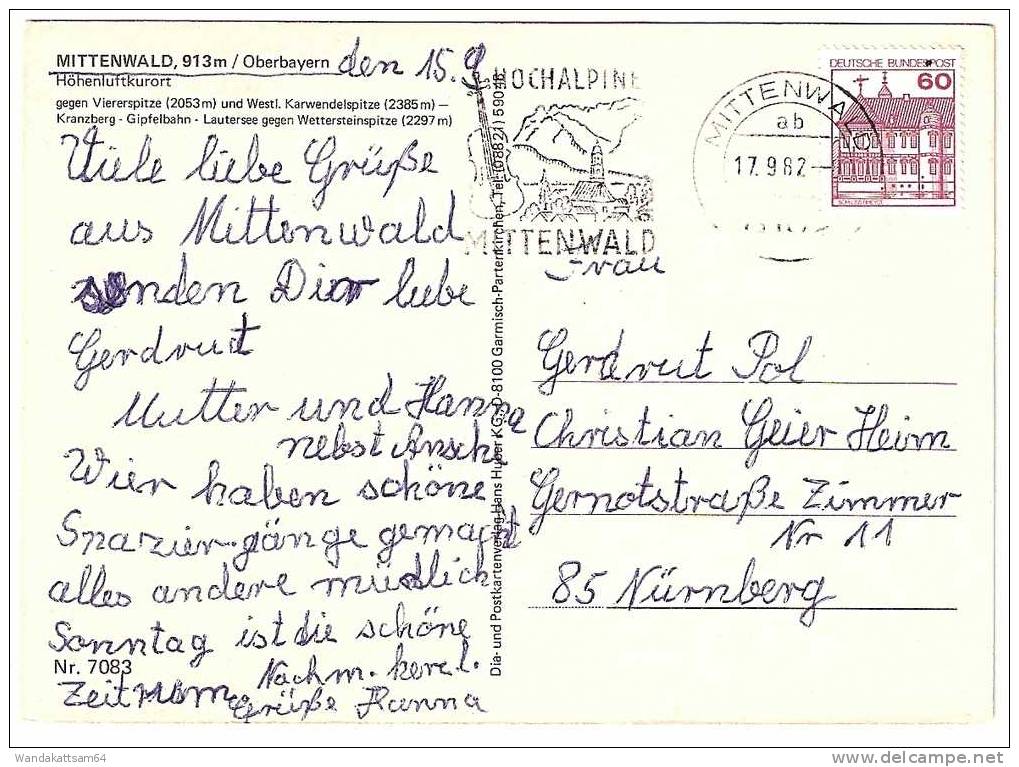 MITTENWALD, 913 m / Oberbayern
Höhenluftkurort
gegen Viererspitze (2053 m) und Westl. Karwendelspitze (2385 m) –
Kranzberg - Gipfelbahn - Lautersee gegen Wettersteinspitze (2297 m)
den 15. 9
Viele liebe Grüße
aus Mittenwald
senden Dir liebe
Gerdrut
Mutter und Hanna
nebst
Wier haben schöne
Spazier-gänge gemacht
alles andere mündlich
Sonntag ist die schöne
Zeit rum.
Nachm.
Grüße Hanna
Nr. 7083
Dia- und Postkartenverlag Hans Huber KG, D-8100 Garmisch-Partenkirchen, Tel. (08821) 59048
HOCHALPINE
MITTENWALD
MITTENWALD
ab
17.9.82
DEUTSCHE BUNDESPOST
60
Frau
Gerdrut Pol
Christian Geier Heim
Gernotstraße Zimmer
Nr 11
85 Nürnberg
Wandakattsam64
delcampe.net